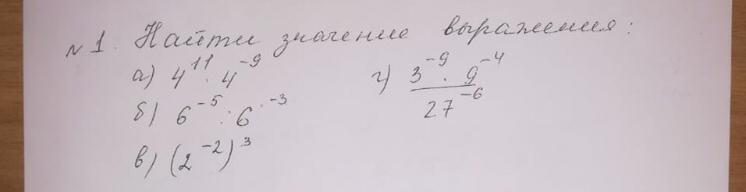 №1. Найти значение выражения:
а) 4¹¹ · 4⁻⁹
б) 6⁻⁵ : 6⁻³
в) (2⁻²)³
г) 3⁻⁹ · 9⁻⁴
27⁻⁶